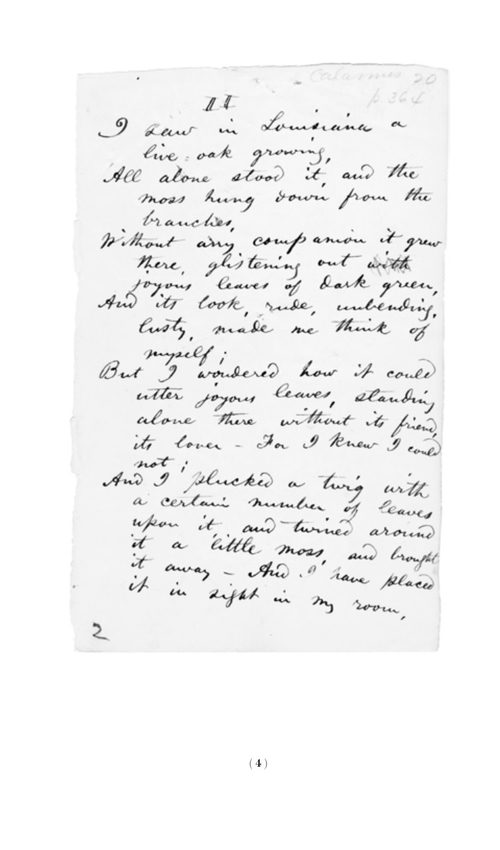 Calamus 20
p. 364
II
I saw in Louisiana a
live-oak growing,
All alone stood it, and the
moss hung down from the
branches,
Without any companion it grew
there, glistening out with
joyous leaves of dark green,
And its look, rude, unbending,
lusty, made me think of
myself;
But I wondered how it could
utter joyous leaves, standing
alone there without its friend,
its lover – For I knew I could
not;
And I plucked a twig with
a certain number of leaves
upon it, and twined around
it a little moss, and brought
it away – And I have placed
it in sight in my room,
2
(4)